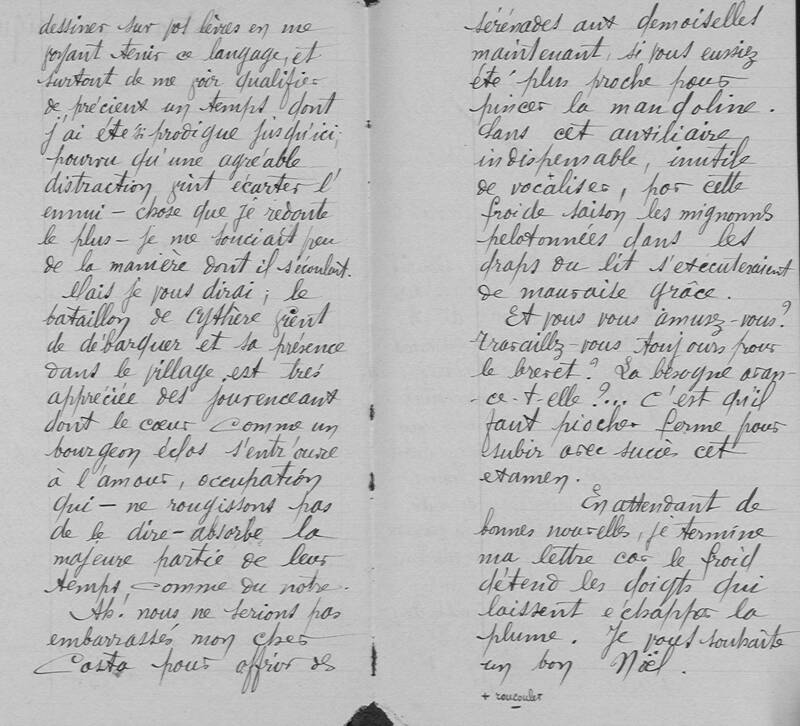 dessiner sur vos lèvres en me
voyant tenir ce langage, et
surtout de me voir qualifier
de précieux un temps dont
j'ai été si prodigue jusqu'ici;
pourvu qu'une agréable
distraction vint écarter l'
ennui – chose que je redoute
le plus – je me souciais peu
de la manière dont il s'écoulait.
Mais je vous dirai; le
bataillon de Cythère vient
de débarquer et sa présence
dans le village est très
appréciée des jouvenceaux
dont le cœur comme un
bourgeon éclos s'entr'ouvre
à l'amour, occupation
qui – ne rougissons pas
de le dire – absorbe la
majeure partie de leur
temps, comme du notre.
Ah! nous ne serions pas
embarrassés mon cher
Costa pour offrir des
sérénades aux demoiselles
maintenant, si vous eussiez
été plus proche pour
pincer la mandoline.
Sans cet auxiliaire
indispensable, inutile
de vocaliser, par cette
froide saison les mignonnes
pelotonnées dans les
draps du lit s'exécuteraient
de mauvaise grâce.
Et vous vous amusez-vous?
travaillez-vous toujours pour
le brevet? La besogne avan-
-ce-t-elle?... C'est qu'il
faut piocher ferme pour
subir avec succès cet
examen.
En attendant de
bonnes nouvelles, je termine
ma lettre car le froid
détend les doigts qui
laissent échapper la
plume. Je vous souhaite
un bon Noël.
+ roucouler